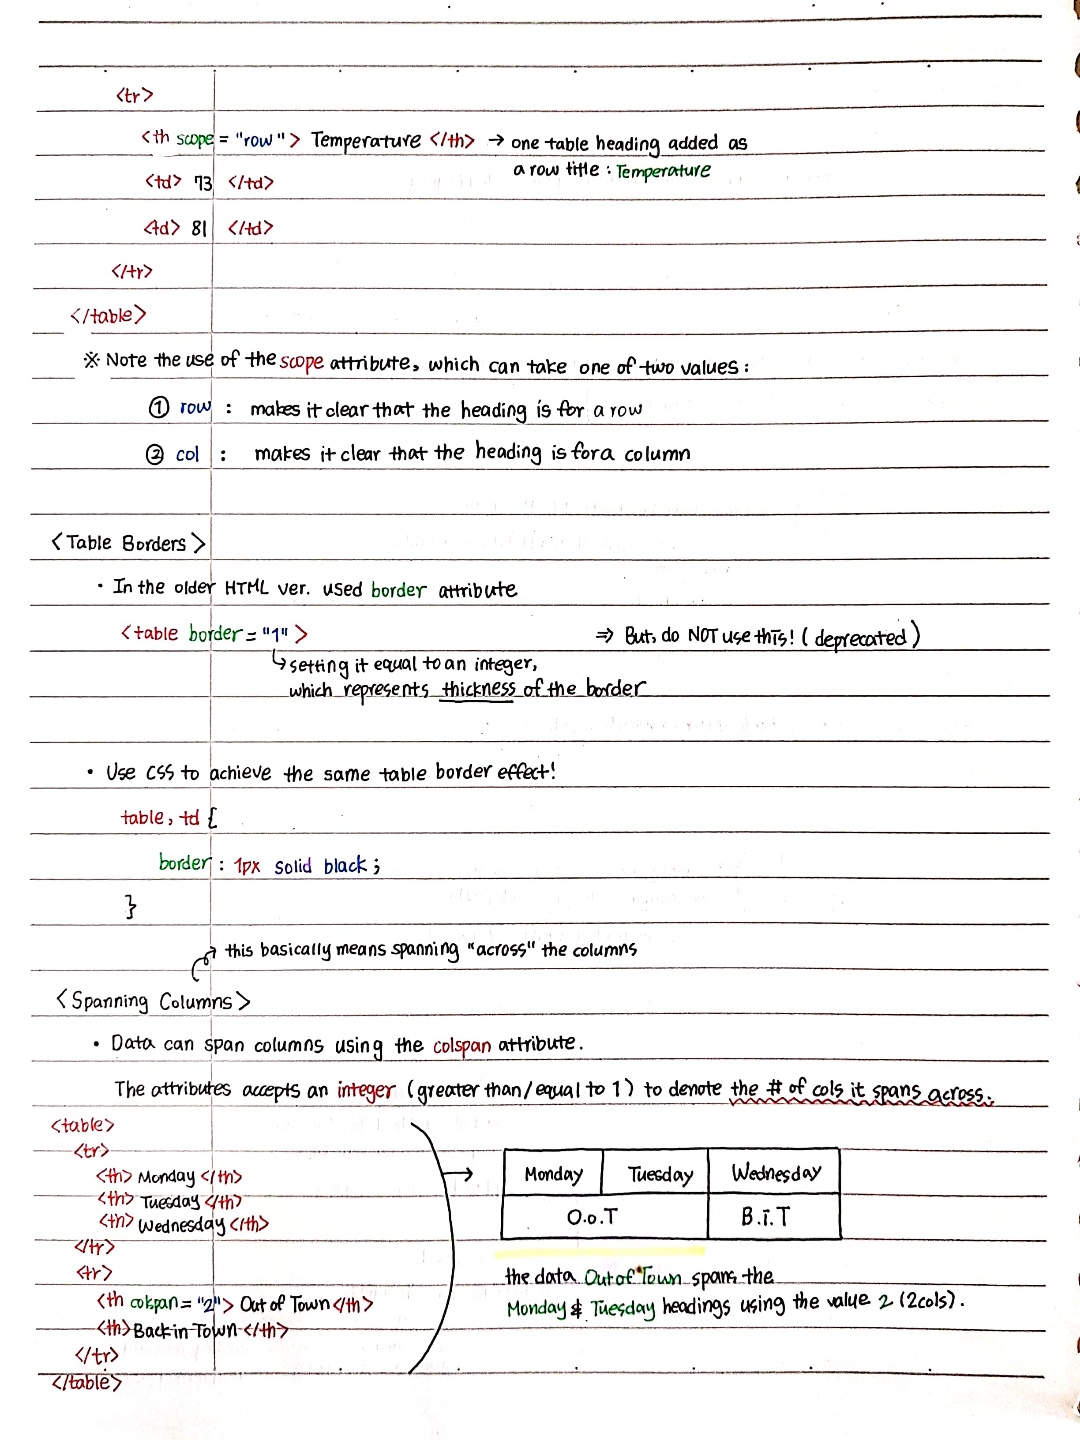 <tr>
<th scope = "row"> Temperature </th> → one table heading added as
a row title : Temperature
<td> 73 </td>
<td> 81 </td>
</tr>
</table>
※ Note the use of the scope attribute, which can take one of two values :
① row : makes it clear that the heading is for a row
② col : makes it clear that the heading is for a column
<Table Borders>
• In the older HTML ver. used border attribute
<table border = "1"> ⇒ But, do NOT use this! (deprecated)
↳ setting it equal to an integer,
which represents thickness of the border
• Use CSS to achieve the same table border effect!
table, td {
border : 1px solid black ;
}
this basically means spanning "across" the columns
<Spanning Columns>
• Data can span columns using the colspan attribute.
The attributes accepts an integer (greater than/equal to 1) to denote the # of cols it spans across.
<table>
<tr>
<th> Monday </th>
<th> Tuesday </th>
<th> Wednesday </th>
</tr>
<tr>
<th colspan = "2"> Out of Town </th>
<th> Back in Town </th>
</tr>
</table>
→ Monday Tuesday Wednesday
O.o.T B.i.T
the data Out of Town spans the
Monday & Tuesday headings using the value 2 (2cols).